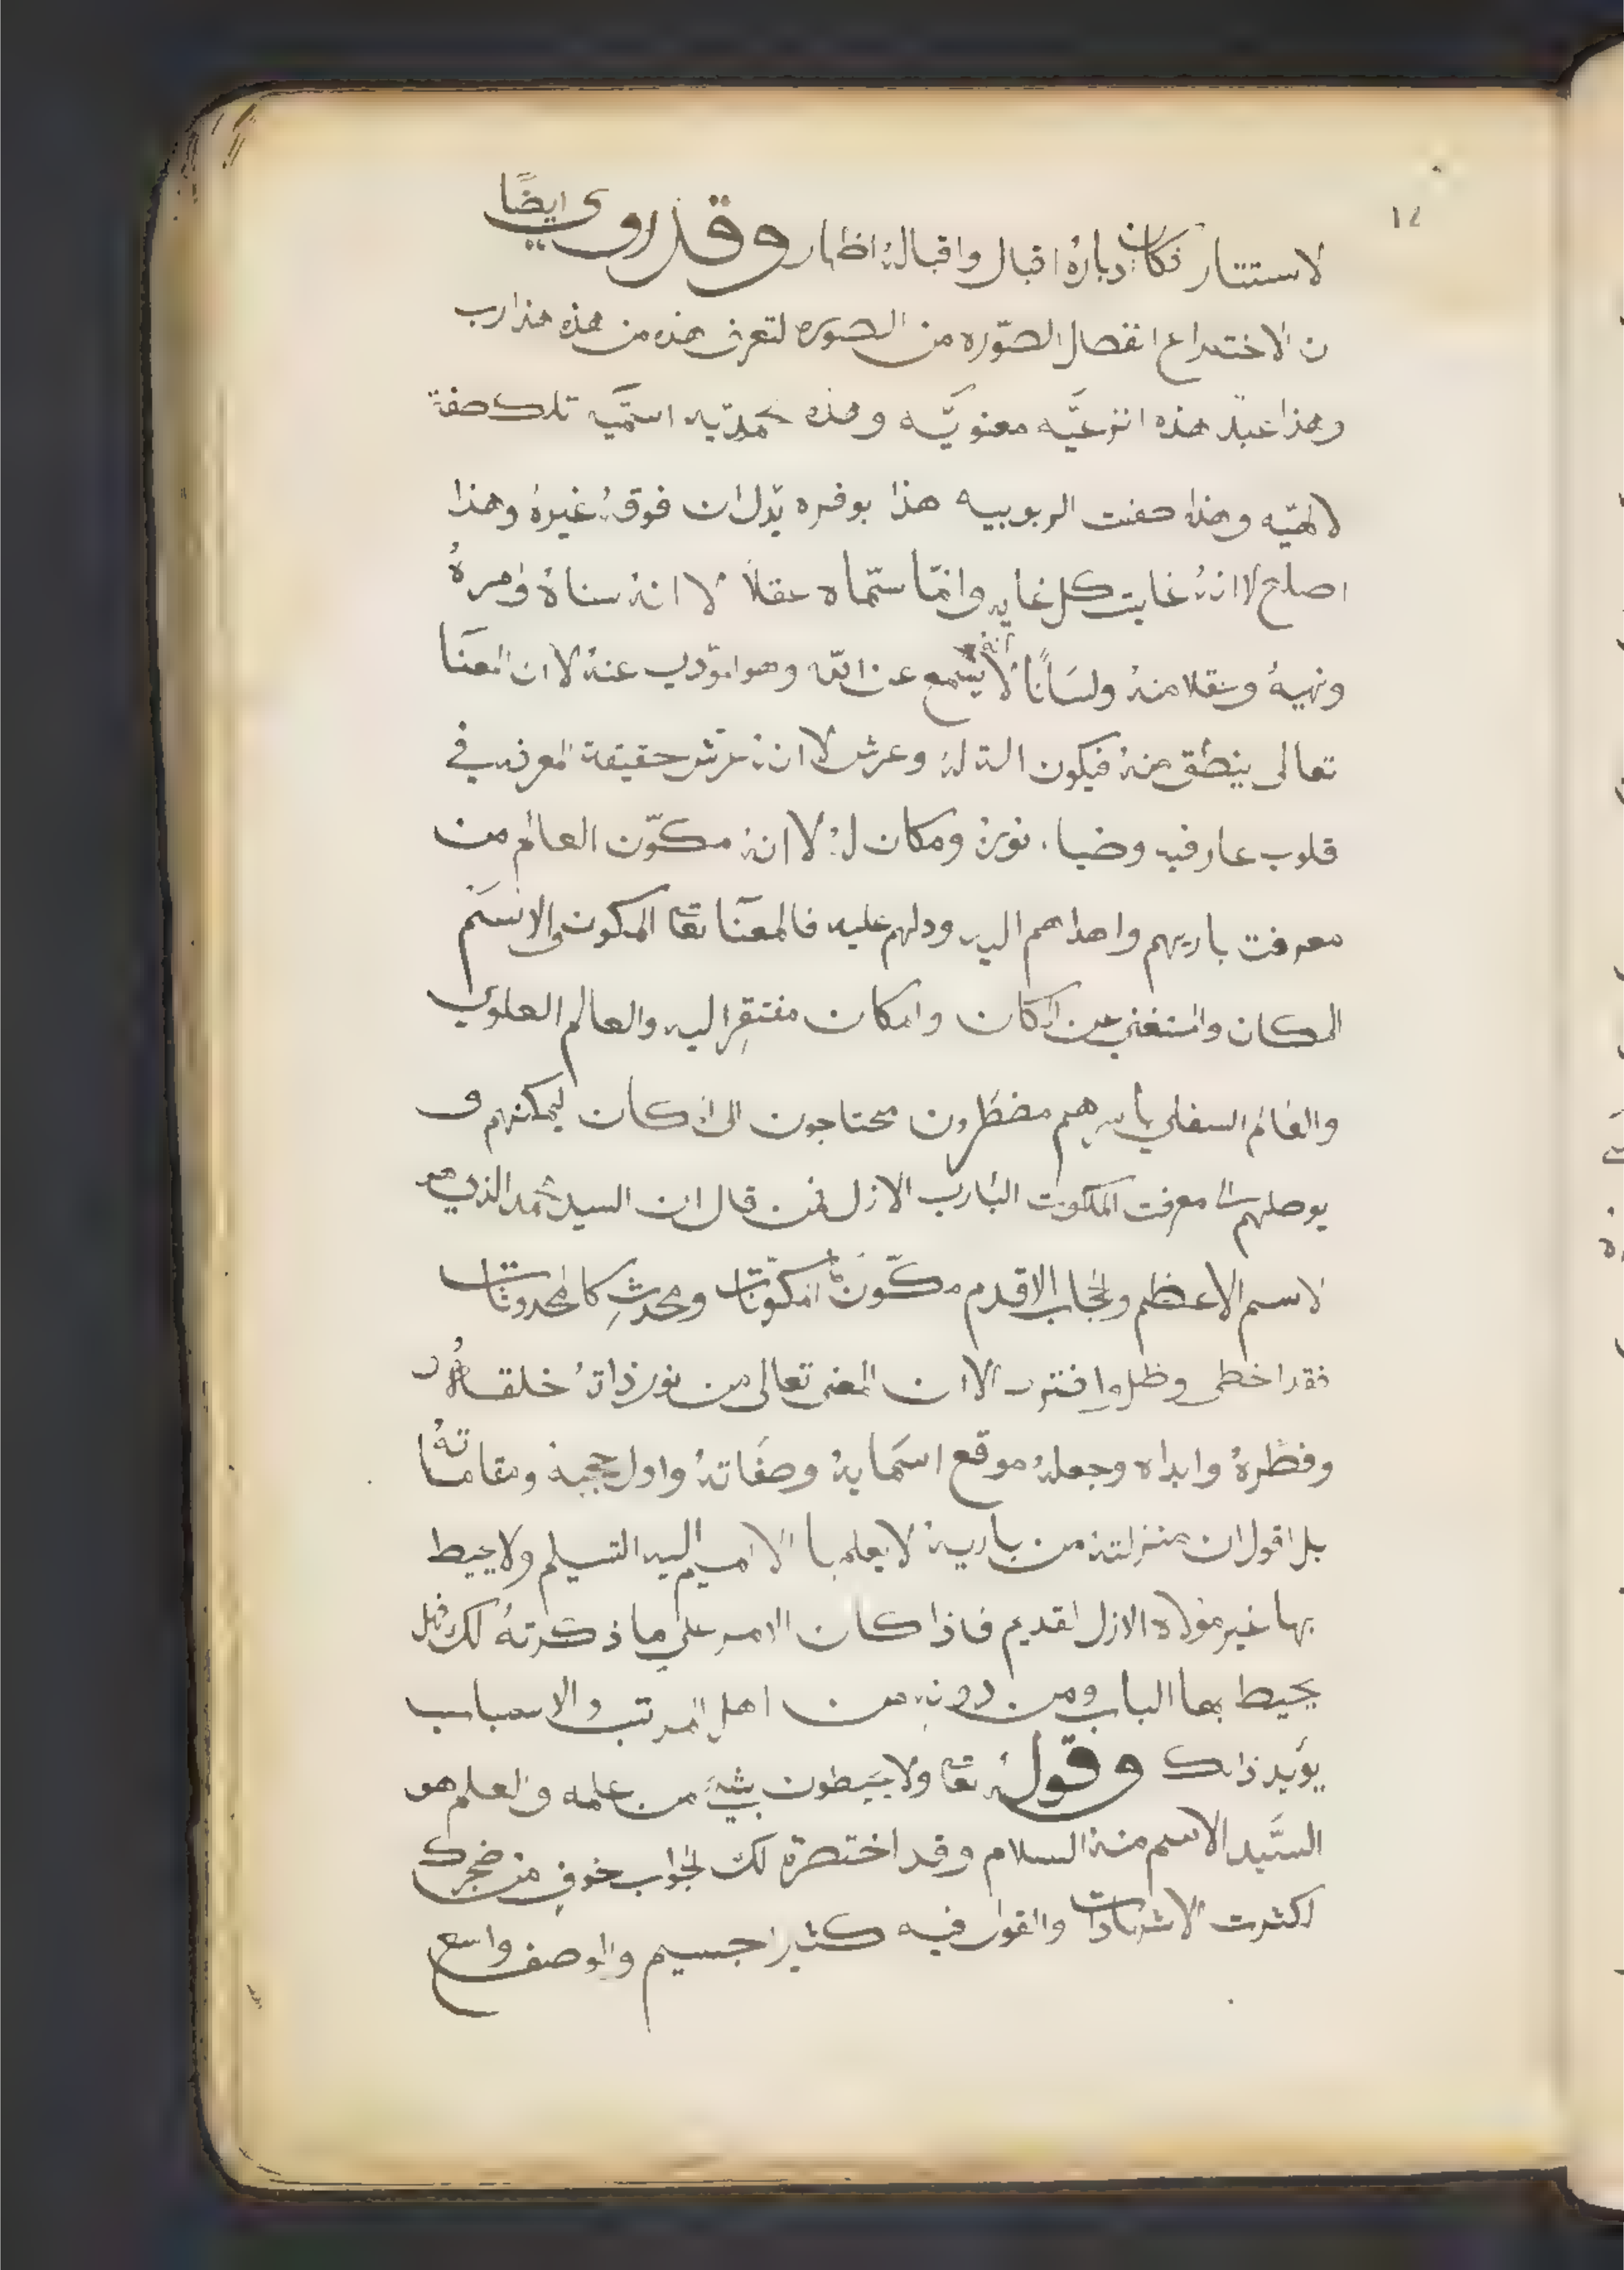 ١٤
لاستتار فكان ادباره اقبال واقباله اظهار وقد روي ايضًا
ن الاختراع انفصال الصّوره من الصوره لتعرف هذه من هذه هذا رب
وهذا عبدً هذه انزعيَّه معنويَّه وهذه محمديّه اسمّيه تلك صفة
لاهيّه وهذا صفت الربوبيه هذا بوفره يدّل ان فوقهُ غيرهُ وهذا
اصلح لا انهُ غايت كل غايه وانمّا سمّاه عقلاً لا انهُ سناهُ وامرهُ
ونهيهُ وعقلا منهُ ولسَانًا لا انهُ يسَمع عن الله وهو امؤدي عنهُ لا ان المعنَا
تعالى ينطق منهُ فيكون الة لهُ وعرش لا انهُ عرش حقيقة المعرفه في
قلوب عارفيه وضيا نورهُ ومكان لهُ لا انهُ مكوّن العالم من
معرفت باريهم واهداهم اليه ودلهم عليه فالمعنَا تعا المكون والاسَم
المكان والمستغني عن المكان وامكان مفتقِر اليه والعالم العلوي
والعالم السفلي باسرهم مضطَرون محتاجون الى المكان ليمكنهم و
يوصلهم الى معرفت المكون البَاري الازل فمن قال ان السيد محمد الذي هو
لاسم الاعظم ولحجاب الاقدم مكّون كالمكَونات ومحدثِ كالمحدوثات
فقد اخطى وظل وافترى الا ان المعنى تعالى من نور ذاتهُ خلقهُ
وفطرهُ وابداه وجعلهُ موقع اسَمايهُ وصفَاتهُ واول حجبه ومقاماتهُ
بل اقول ان منزلتهُ من باريهُ لا يعلمها الا ميم اليه التسليم ولا يحيط
بها غير مولاه الازل لقديم فاذا كان الامر على ما ذكرتهُ لك فهل
يحيط بها الباب ومن دونه من اهل المرتب والاسباب
يؤيد ذالك وقولهُ تعا ولا يحَيطون بشيءَ من علمه والعلم هو
السَّيد الاسم منهُ السلام وقد اختصرة لك لجواب خوفٍ من ضجرك
لكثرت الاشهادات والقول فيه كثير جسيم والوصف واسع